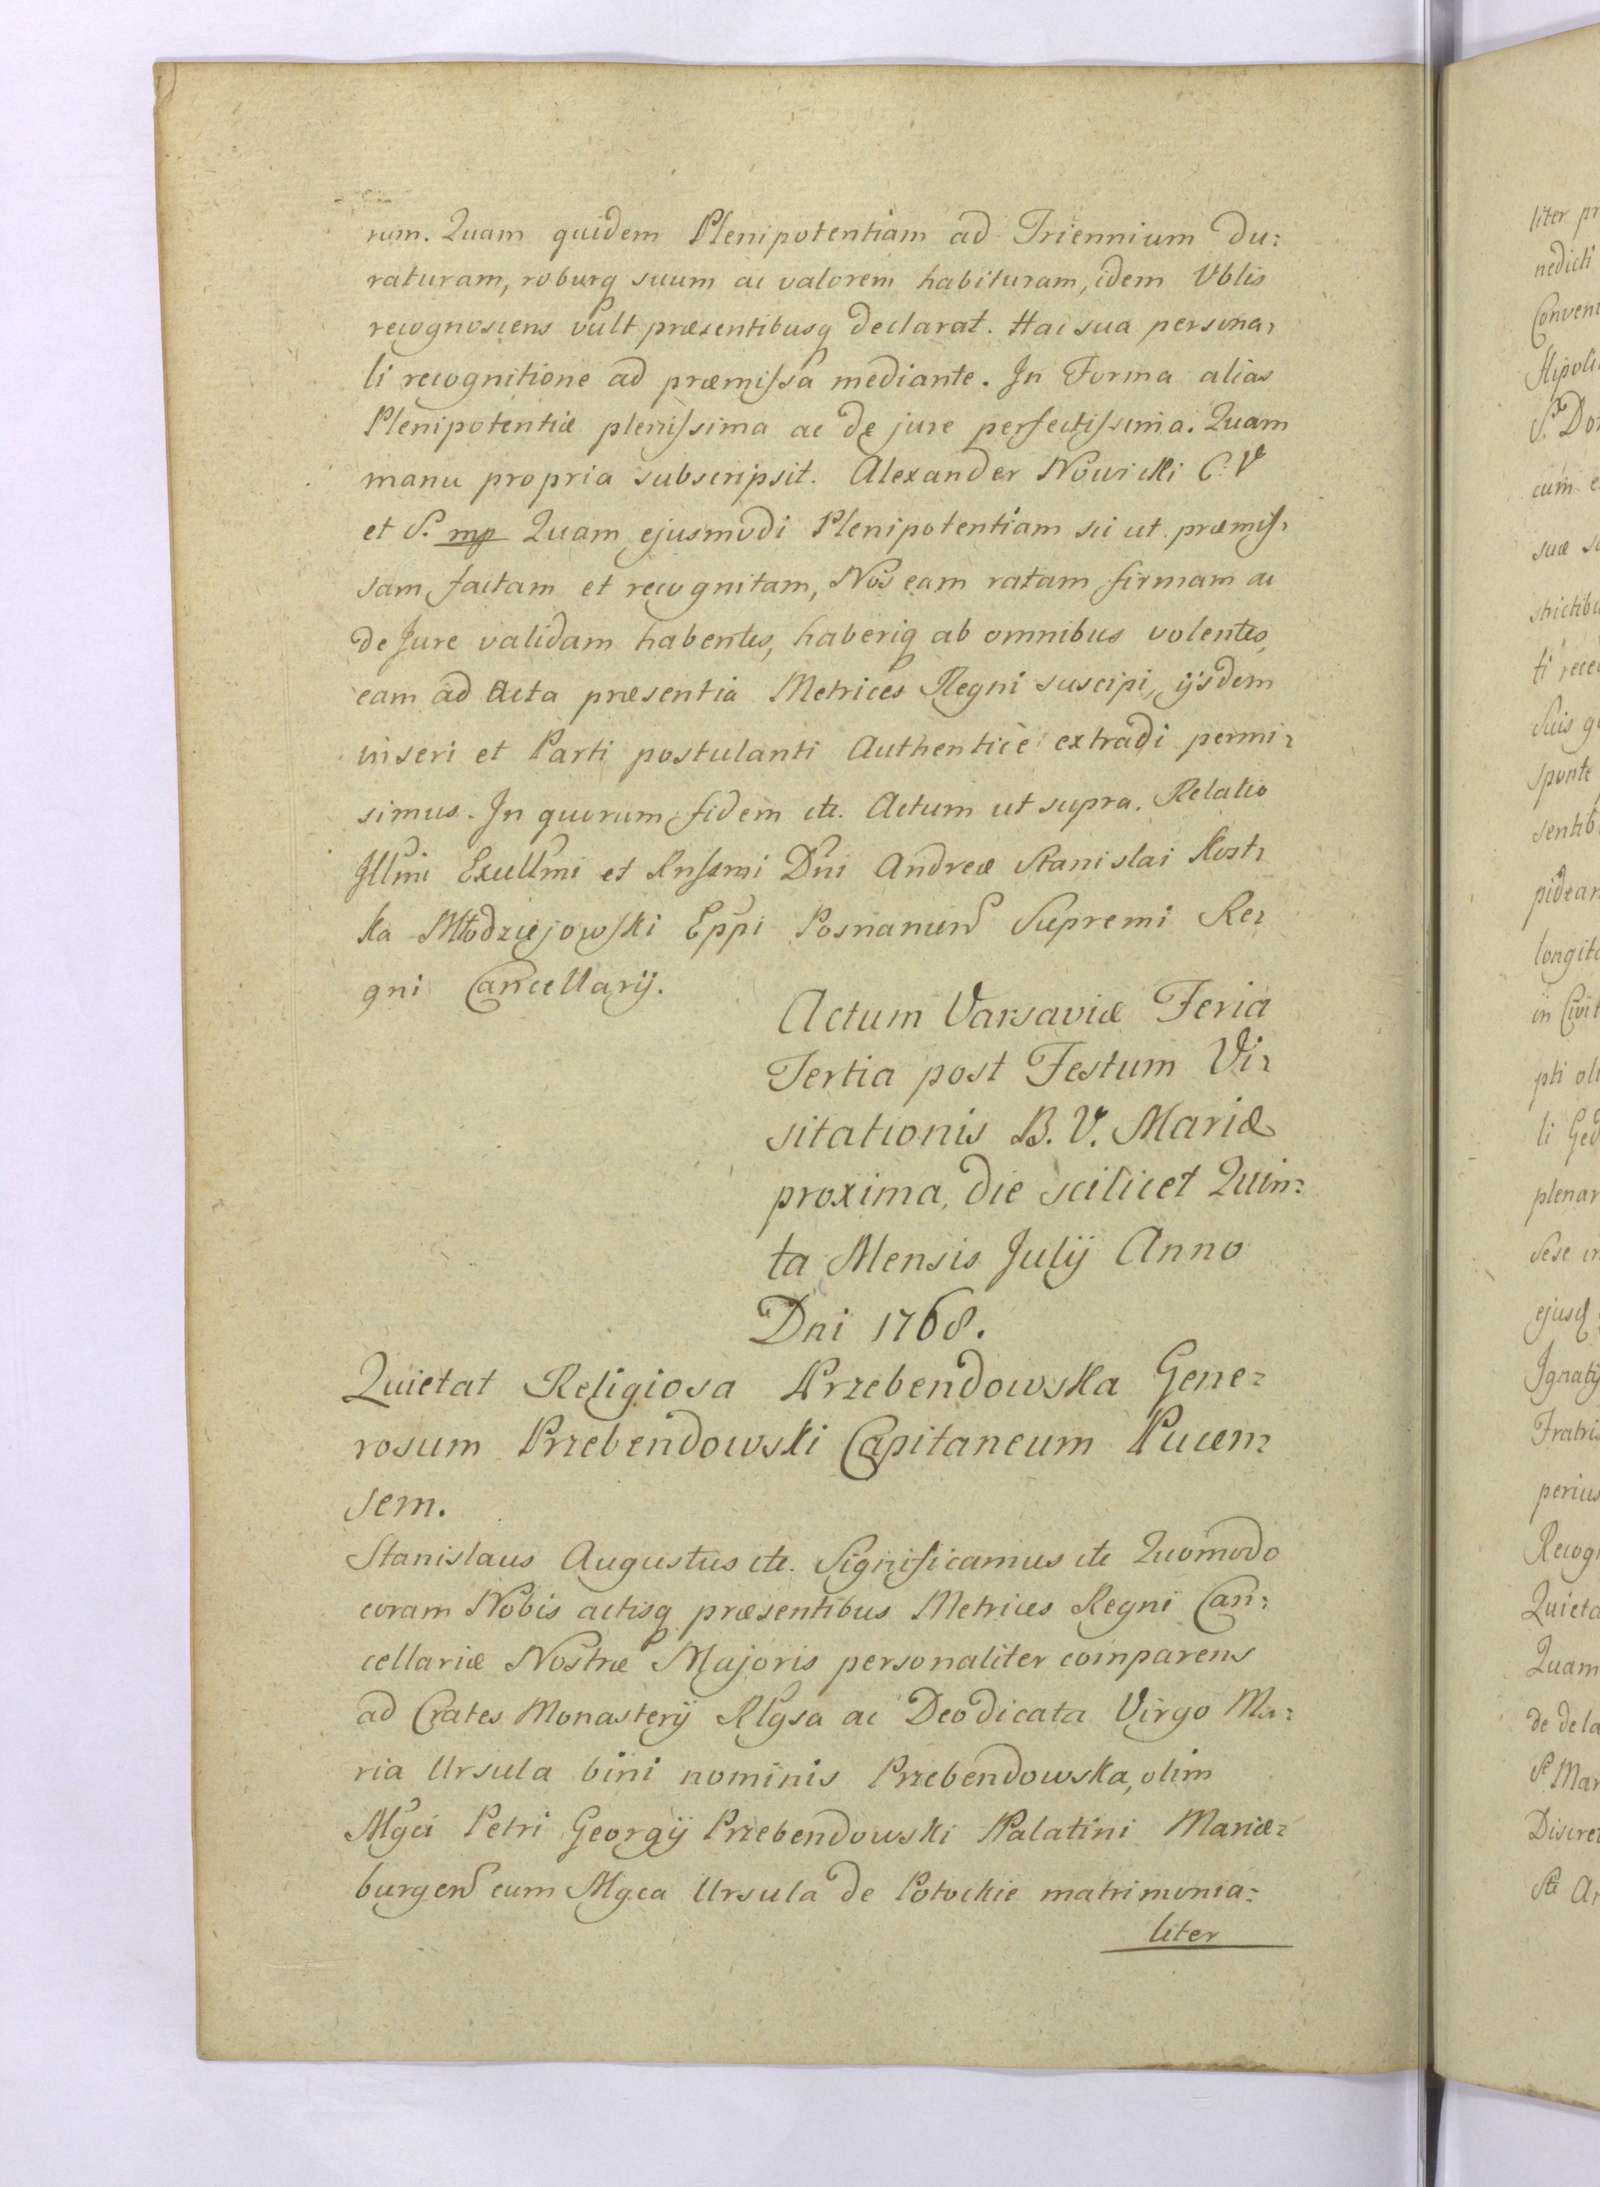 rum. Quam quidem Plenipotentiam ad Triennium du:
raturam, roburq suum ac valorem habituram, idem Vblis
recognoscens vult præsentibusq declarat. Hac sua persona,
li recognitione ad præmissa mediante. In Forma alias
Plenipotentiæ plenissima ac de jure perfectissima. Quam
manu propria subscripsit. Alexander Nowicki C. V
et S. mp Quam ejusmodi Plenipotentiam sic ut præmis,
sam factam et recognitam, Nos eam ratam firmam ac
de Jure validam habentes, haberiq ab omnibus volentes,
eam ad Acta præsentia Metrices Regni suscipi, ijsdem
inseri et Parti postulanti Authenticè extradi permi:
simus. In quorum fidem etc. Actum ut supra. Relatio
Jllmi Excllmi et Rnssmi Dni Andreæ Stanislai Kost,
ka Młodziejowski Eppi Posnaniens Supremi Re:
gni Cancellarij.
Actum Varsaviæ Feria
Tertia post Festum Vi:
sitationis B. V. Mariæ
proxima, die scilicet Quin:
ta Mensis Julij Anno
Dni 1768.
Quietat Religiosa Przebendowska Gene:
rosum Przebendowski Capitaneum Pucen:
sem.
Stanislaus Augustus etc. Significamus etc Quomodo
coram Nobis actisq præsentibus Metrices Regni Can:
cellariæ Nostræ Majoris personaliter comparens
ad Crates Monasterij Rlgsa ac Deodicata Virgo Ma:
ria Ursula bini nominis Przebendowska, olim
Mgci Petri Georgij Przebendowski Palatini Mariæ:
burgens cum Mgca Ursula de Potockie matrimonia:
liter